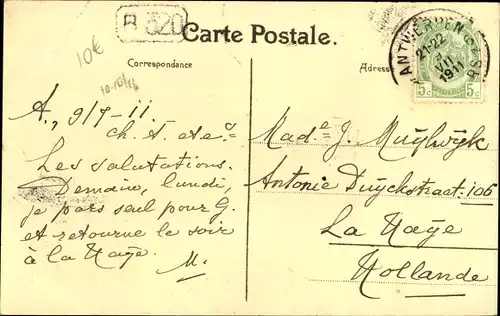 10€
R 320
Carte Postale.
Correspondance
Adresse
ANTWERPEN
21-22
VII
1911
5c 5c
A., 9/7-11.
Les salutations.
Demain, lundi,
je pars seul pour G.
et retourne le soir
à la Haye.
M.
Made J. Muÿlwÿk
Antonie Duÿckstraat. 106
La Haÿe
Hollande